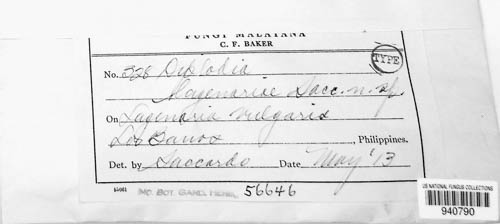 FUNGI MALAYANA
C. F. BAKER
TYPE
No. 526 Diplodia
Lagenariae Sacc. n. sp.
On Lagenaria vulgaris
Los Banos, Philippines.
Det. by Saccardo Date May '13
MO. BOT. GARD. HERB. 56646
US NATIONAL FUNGUS COLLECTIONS
940790